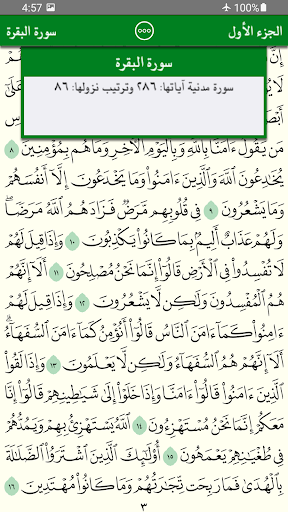 4:57
55%
الجزء الأول
سورة البقرة
سورة البقرة
سورة مدنية آياتها: ٢٨٦ وترتيب نزولها: ٨٦
مَن يَقُولُ ءَامَنَّا بِٱللَّهِ وَبِٱلۡيَوۡمِ ٱلۡأٓخِرِ وَمَا هُم بِمُؤۡمِنِينَ ٨
يُخَٰدِعُونَ ٱللَّهَ وَٱلَّذِينَ ءَامَنُواْ وَمَا يَخۡدَعُونَ إِلَّآ أَنفُسَهُمۡ
وَمَا يَشۡعُرُونَ ٩ فِي قُلُوبِهِم مَّرَضٞ فَزَادَهُمُ ٱللَّهُ مَرَضٗاۖ
وَلَهُمۡ عَذَابٌ أَلِيمُۢ بِمَا كَانُواْ يَكۡذِبُونَ ١٠ وَإِذَا قِيلَ لَهُمۡ
لَا تُفۡسِدُواْ فِي ٱلۡأَرۡضِ قَالُوٓاْ إِنَّمَا نَحۡنُ مُصۡلِحُونَ ١١ أَلَآ إِنَّهُمۡ
هُمُ ٱلۡمُفۡسِدُونَ وَلَٰكِن لَّا يَشۡعُرُونَ ١٢ وَإِذَا قِيلَ لَهُمۡ
ءَامِنُواْ كَمَآ ءَامَنَ ٱلنَّاسُ قَالُوٓاْ أَنُؤۡمِنُ كَمَآ ءَامَنَ ٱلسُّفَهَآءُۗ
أَلَآ إِنَّهُمۡ هُمُ ٱلسُّفَهَآءُ وَلَٰكِن لَّا يَعۡلَمُونَ ١٣ وَإِذَا لَقُواْ
ٱلَّذِينَ ءَامَنُواْ قَالُوٓاْ ءَامَنَّا وَإِذَا خَلَوۡاْ إِلَىٰ شَيَٰطِينِهِمۡ قَالُوٓاْ إِنَّا
مَعَكُمۡ إِنَّمَا نَحۡنُ مُسۡتَهۡزِءُونَ ١٤ ٱللَّهُ يَسۡتَهۡزِئُ بِهِمۡ وَيَمُدُّهُمۡ
فِي طُغۡيَٰنِهِمۡ يَعۡمَهُونَ ١٥ أُوْلَٰٓئِكَ ٱلَّذِينَ ٱشۡتَرَوُاْ ٱلضَّلَٰلَةَ
بِٱلۡهُدَىٰ فَمَا رَبِحَت تِّجَٰرَتُهُمۡ وَمَا كَانُواْ مُهۡتَدِينَ ١٦
٣